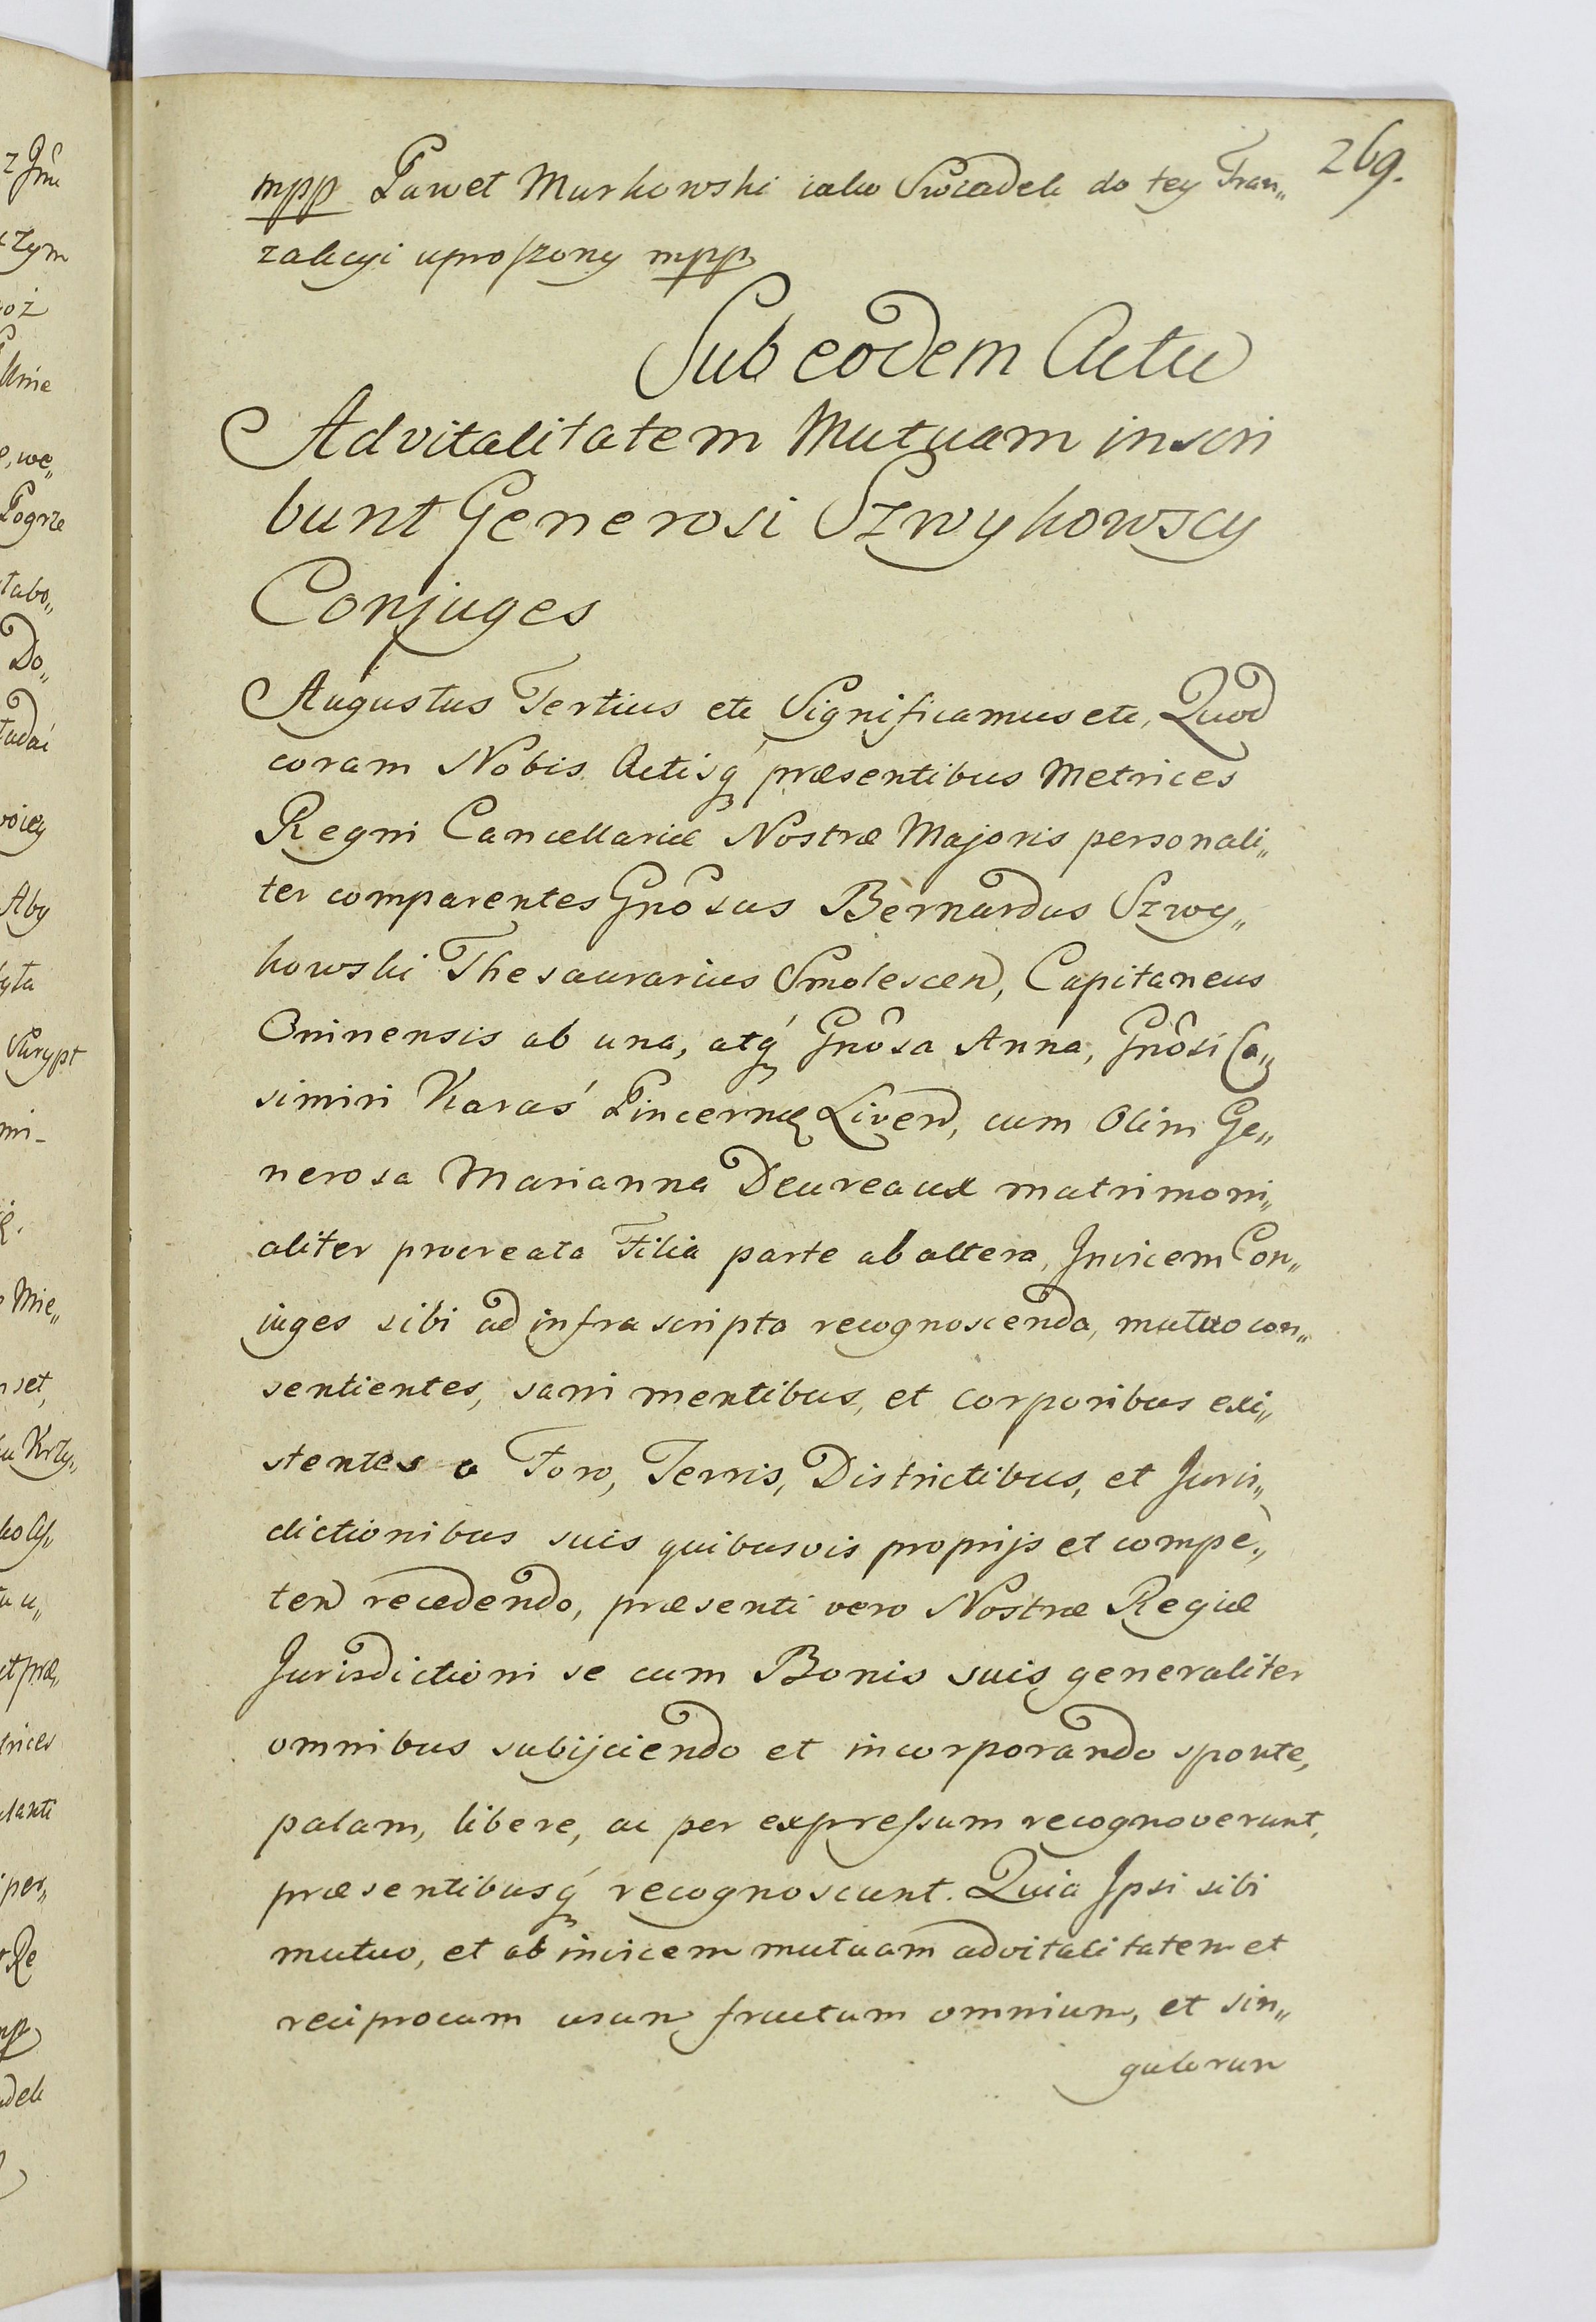 269.
mpp Paweł Murkowski iako Swiadek do tey Tran„
zakcyi uproszony mpp
Sub eodem Actu
Advitalitatem Mutuam inscri
bunt Generosi Szwykowscy
Conjuges
Augustus Tertius etc Significamus etc, Quod
coram Nobis Actisq́ præsentibus Metrices
Regni Cancellariæ Nostræ Majoris personali„
ter comparentes Gnôsus Bernardus Szwy„
kowski Thesaurarius Smolescen, Capitaneus
Oninensis ab una, atq́ Gnôsa Anna, Gnôsi Ca„
simiri Karaś Pincernæ Liven, cum Olim Ge„
nerosa Marianna Deureaux matrimoni„
aliter procreata Filia parte ab altera, Invicem Con„
iuges sibi ad infra scripta recognoscenda, mutuo con„
sentientes, sani mentibus, et corporibus exi„
stentes a Foro, Terris, Districtibus, et Juris„
dictionibus suis quibusvis proprijs et compe„
ten recedendo, præsenti vero Nostræ Regiæ
Jurisdictioni se cum Bonis suis generaliter
omnibus subijciendo et incorporando sponte,
palam, libere, ac per expressum recognoverunt,
præsentibusq́ recognoscunt. Quia Ipsi sibi
mutuo, et ab invicem mutuam advitalitatem et
reciprocum usum fructum omnium, et sin„
gulorum